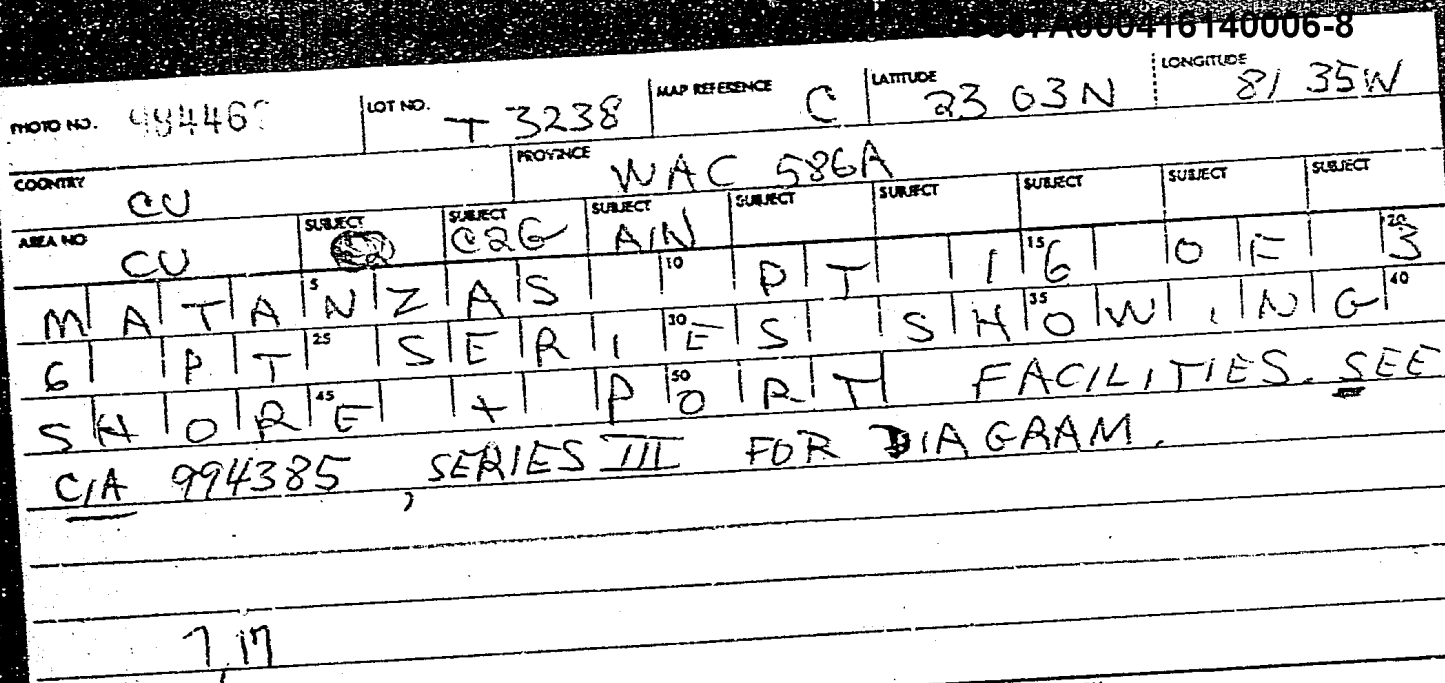 7A000416140006-8
PHOTO NO. LOT NO. T 3238 MAP REFERENCE C LATITUDE 23 03 N LONGITUDE 81 35 W
COUNTRY CU PROVINCE WAC 586A
AREA NO CU SUBJECT SUBJECT C2G SUBJECT A/N SUBJECT SUBJECT SUBJECT SUBJECT SUBJECT
MATANZAS PT 16 OF 3
6 PT SERIES SHOWING
SHORE + PORT FACILITIES. SEE
C/A 994385, SERIES III FOR DIAGRAM.
7,17